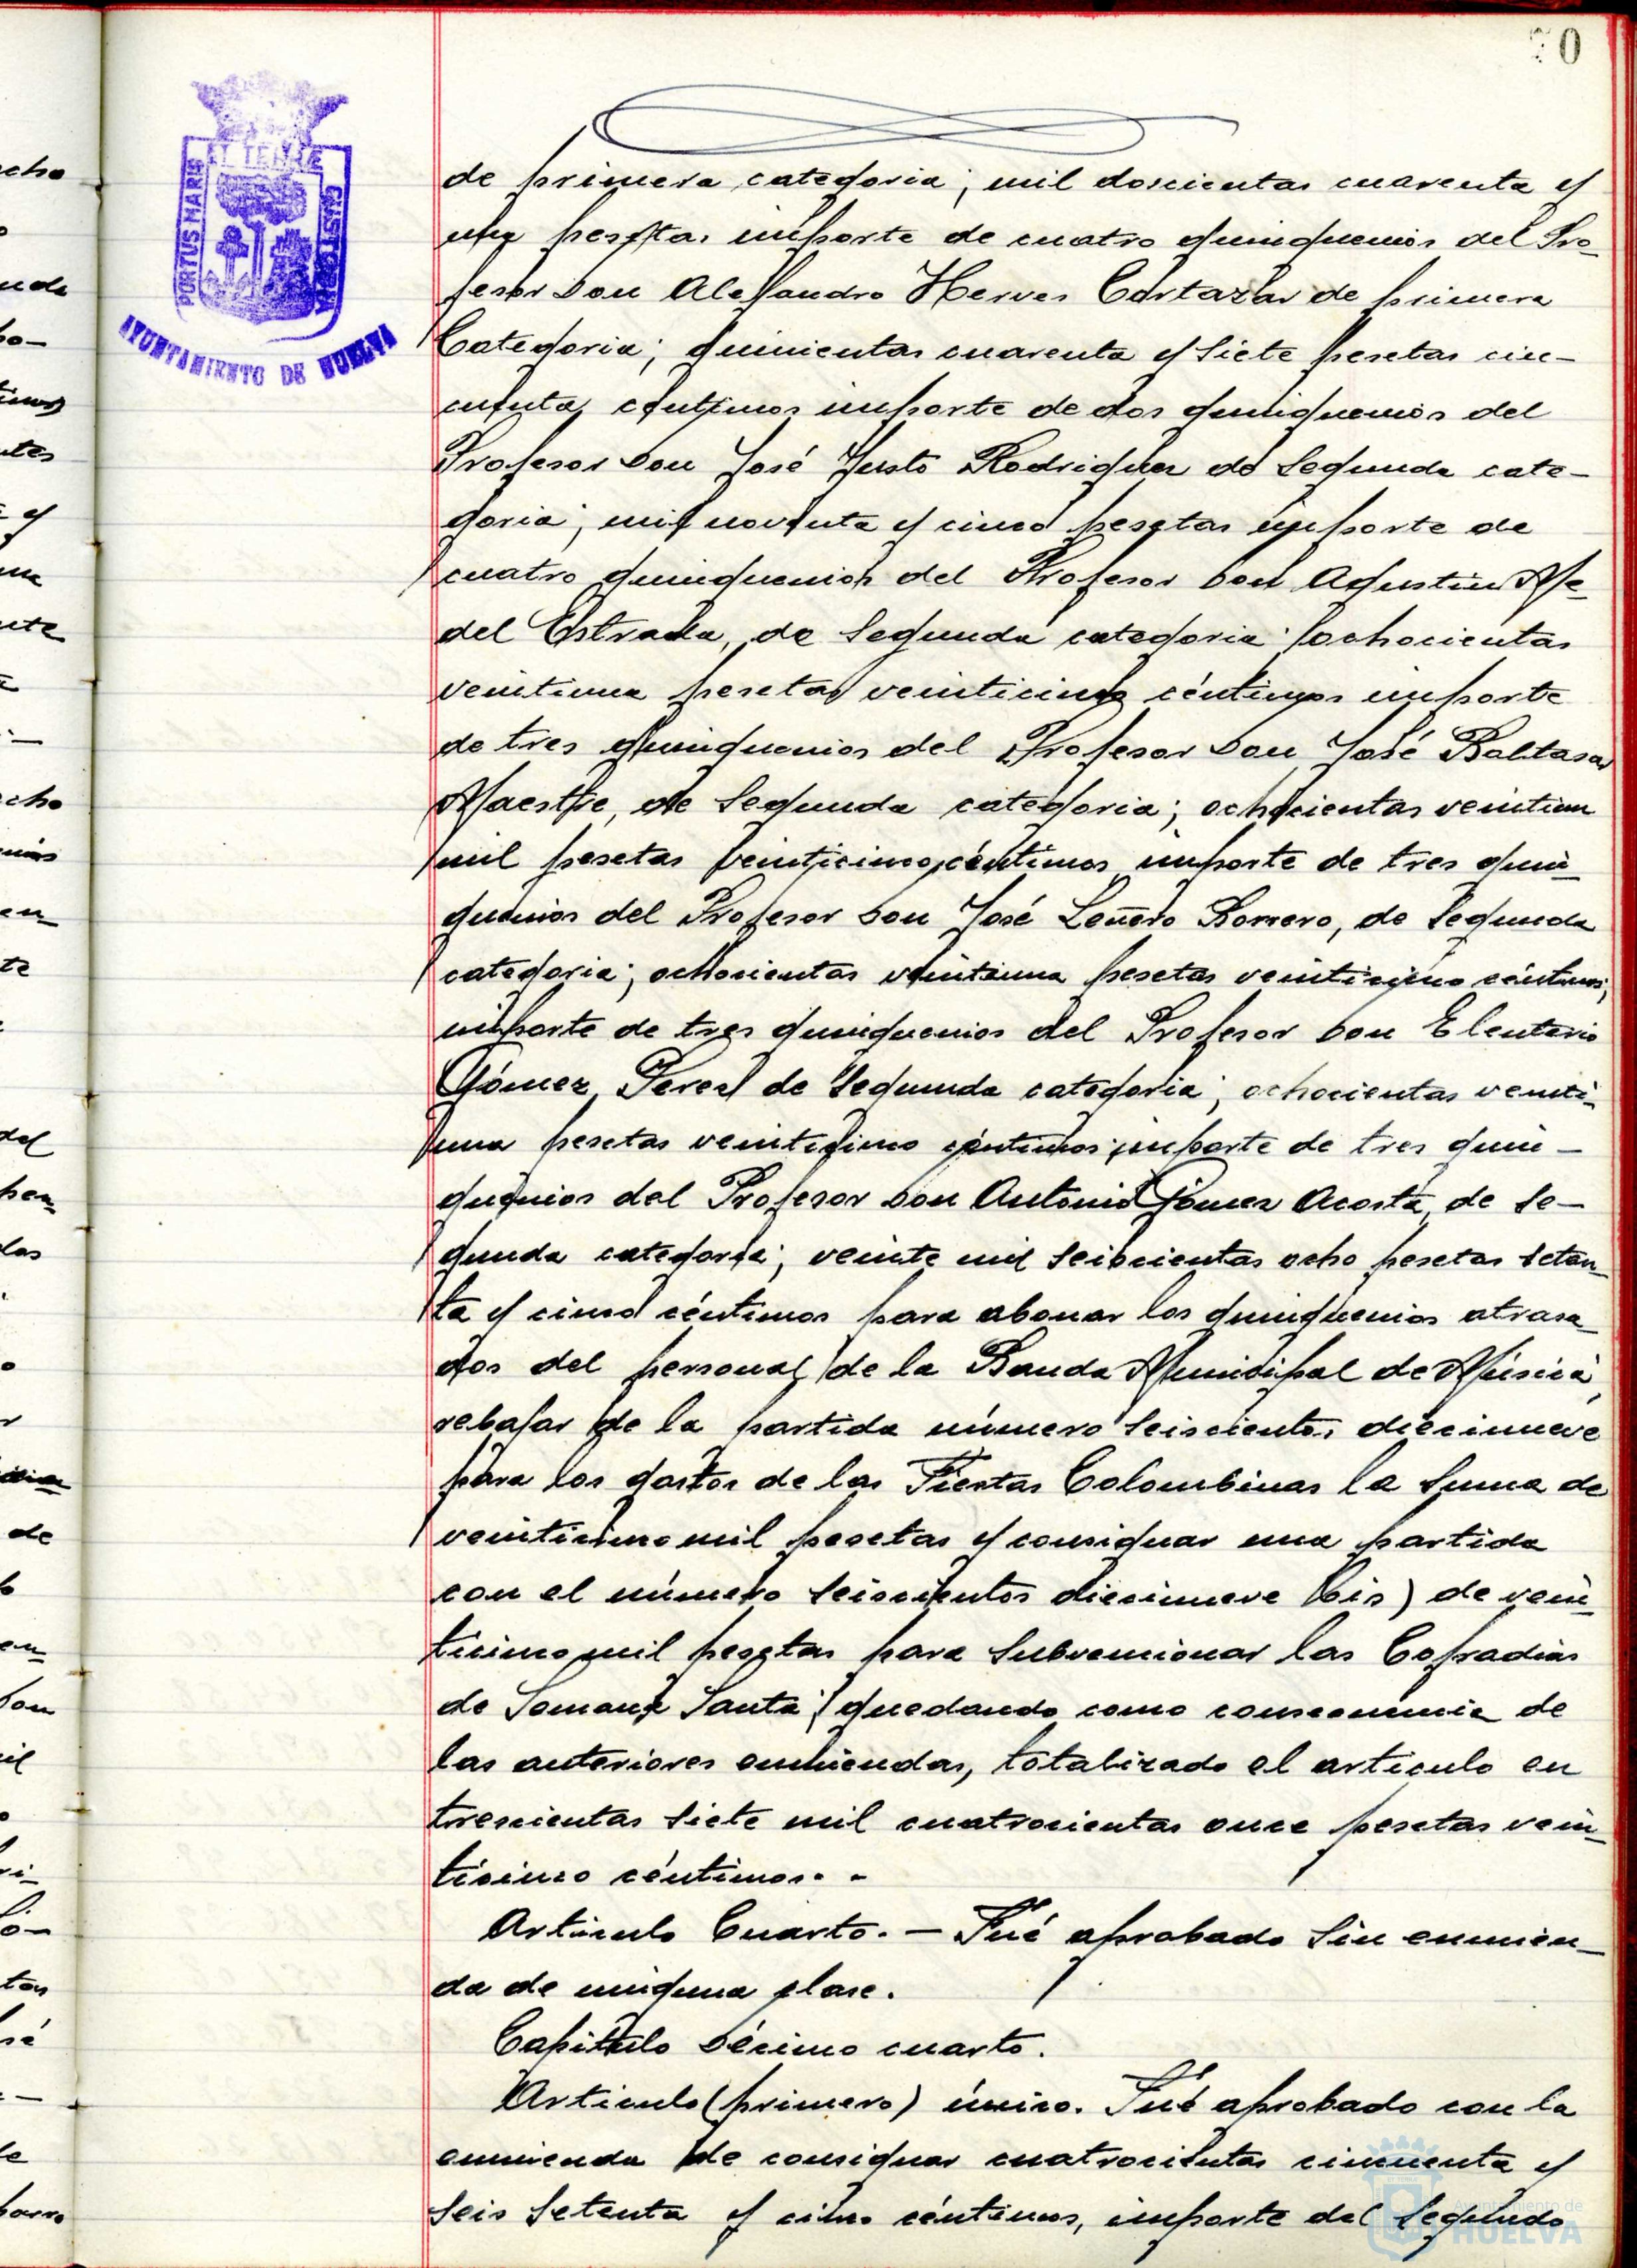 70
PORTUS MARIS
ET TERRE
CUSTODIA
AYUNTAMIENTO DE HUELVA
de primera categoria; mil doscientas cuarenta y
una pesetas importe de cuatro quinquenios del Pro-
fesor Don Alejandro Herves Cortazar de primera
Categoria; quinientas cuarenta y siete pesetas cin-
cuenta céntimos importe de dos quinquenios del
Profesor Don José Justo Rodriguez de Segunda cate-
goria; mil noventa y cinco pesetas importe de
cuatro quinquenios del Profesor Don Agustin Me-
del Estrada, de Segunda categoria; ochocientas
veintiuna pesetas veinticinco céntimos importe
de tres quinquenios del Profesor Don José Baltasar
Maestre, de Segunda categoria; ochocientas veintiun
mil pesetas veinticinco céntimos importe de tres quin-
quenios del Profesor Don José Leñero Borrero, de Segunda
categoria; ochocientas veintiuna pesetas veinticinco céntimos,
importe de tres quinquenios del Profesor Don Eleuterio
Gómez Perez de Segunda categoria; ochocientas veinti-
una pesetas veinticinco céntimos importe de tres quin-
quenios del Profesor Don Antonio Gómez Acosta, de Se-
gunda categoria; veinte mil seiscientas ocho pesetas seten-
ta y cinco céntimos para abonar los quinquenios atrasa-
dos del personal de la Banda Municipal de Música,
rebajar de la partida número seiscientos diecinueve
para los gastos de las Fiestas Colombinas la suma de
veinticinco mil pesetas y consignar una partida
con el número seiscientos diecinueve (bis) de vein-
ticinco mil pesetas para subvencionar las Cofradias
de Semana Santa; quedando como consecuencia de
las anteriores enmiendas, totalizado el articulo en
trescientas siete mil cuatrocientas once pesetas vein-
ticinco céntimos. -
Articulo Cuarto. - Fué aprobado sin enmien-
da de ninguna clase.
Capitulo Décimo cuarto.
Articulo (primero) único. Fué aprobado con la
enmienda de consignar cuatrocientas cincuenta y
seis setenta y cinco céntimos, importe del segundo
Ayuntamiento de
HUELVA